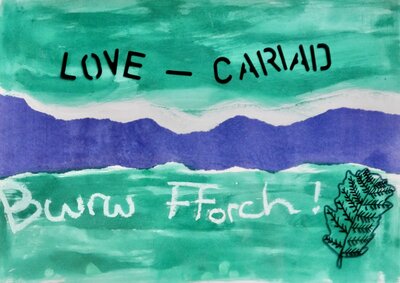 LOVE – CARIAD
Bwrw Fforch!